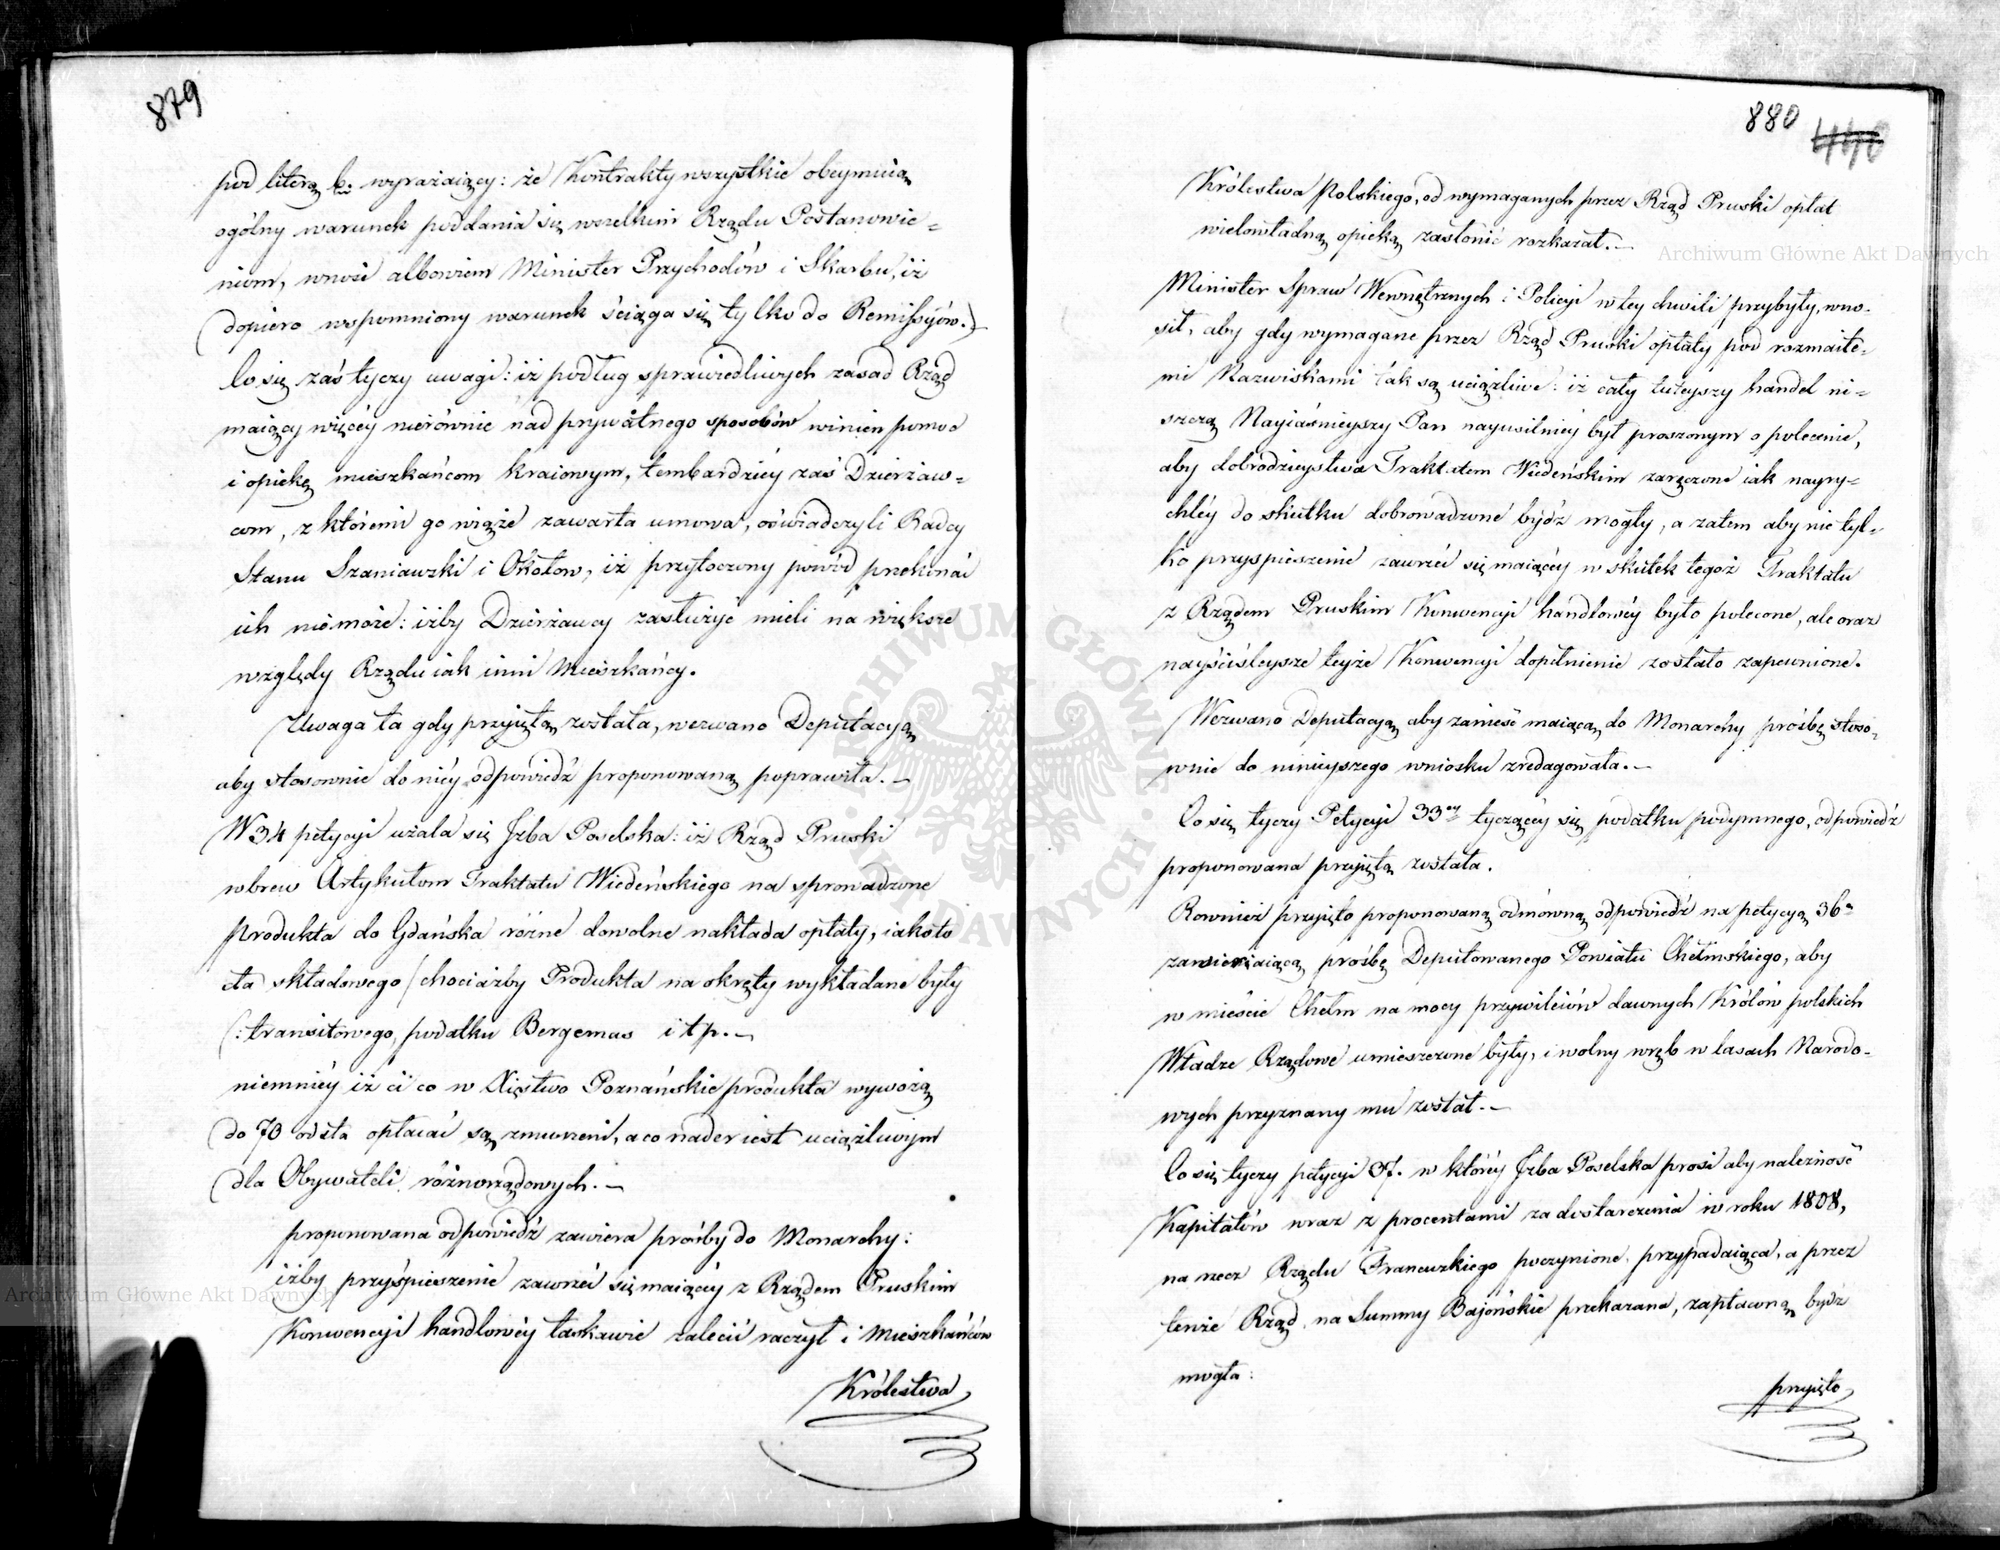 879
pod literą b. wyrażaiący: że Kontrakty wszystkie obeymuią
ogólny warunek poddania się wszelkim Rządu Postanowie=
niom, wnosi albowiem Minister Przychodów i Skarbu, iż
dopiero wspomniony warunek ściąga się tylko do Remissyów.
Co się zaś tyczy uwagi: iż podług sprawiedliwych zasad Rząd
maiący więcéy nierównie nad prywatnego sposobów winien pomoc
i opiekę mieszkańcom kraiowym, tembardziéy zaś Dzierżaw=
com, z któremi go wiąże zawarta umowa, oświadczyli Radcy
Stanu Szaniawski i Okołow, iż przytoczony powód przekonać
ich nie może: iżby Dzierżawcy zasłużyć mieli na większe
względy Rządu iak inni Mieszkańcy.
Uwaga ta gdy przyiętą została, wezwano Deputacyą
aby stosownie do niéy odpowiedź proponowaną poprawiła.—
W 34 petycyi użala się Jzba Poselska: iż Rząd Pruski
wbrew Artykułom Traktatu Wiedeńskiego na sprowadzone
Produkta do Gdańska różne dowolne nakłada opłaty, iakoto
cła składowego / chociażby Produkta na okręty wykładane były
(: transitowego, podatku Bergemas i t p.—
niemniéy iż ci co w Xięstwo Poznańskie produkta wywożą
do 70 od sta opłacać są zmuszeni, a co nader iest uciążliwym
dla Obywateli różnorządowych.—
proponowana odpowiedź zawiera prośby do Monarchy:
iżby przyśpieszenie zawrzeć się maiącéy z Rządem Pruskim
Konwencyi handlowéy łaskawie zalecić raczył i Mieszkańców
Królestwa
880 440
Królestwa Polskiego, od wymaganych przez Rząd Pruski opłat
wielowładną opieką zasłonić rozkazał.—
Minister Spraw Wewnętrznych i Policyi w tey chwili przybyły, wno-
sił, aby gdy wymagane przez Rząd Pruski opłaty pod rozmaite-
mi Nazwiskami tak są uciążliwe: iż cały tuteyszy handel ni=
szczą Nayiaśnieyszy Pan nayusilniéy był proszonym o polecenie,
aby dobrodzieystwa Traktatem Wiedeńskim zaręczone iak nayry-
chléy do skutku dobrowadzone bydź mogły, a zatem aby nie tyl-
ko przyspieszenie zawrzeć się maiącéy w skutek tegoż Traktatu
z Rządem Pruskim Konwencyi handlowéy było polecone, ale oraz
nayściśleysze teyże Konwencyi dopełnienie zostało zapewnione.
Wezwano Deputacyą aby zanieść maiącą do Monarchy prośbę stoso-
wnie do ninieyszego wniosku zredagowała.—
Co się tyczy Petycyi 33ey tyczącéy się podatku podymnego, odpowiedź
proponowana przyiętą została.
Rownież przyięto proponowaną odmówną odpowiedź na petycyą 36a
zawieraiącą prośbę Deputowanego Powiatu Chełmskiego, aby
w mieście Chełm na mocy przywileiów dawnych Królów polskich
Władze Rządowe umieszczone były, i wolny wrąb w lasach Narodo-
wych przyznany mu został.—
Co się tyczy petycyi 37. w któréy Jzba Poselska prosi aby należność
Kapitałów wraz z procentami za dostarczenia w roku 1808,
na rzecz Rządu Francuzkiego poczynione, przypadaiąca, a przez
tenże Rząd na Summy Bajońskie przekazana, zapłaconą bydź
mogła:
przyięto